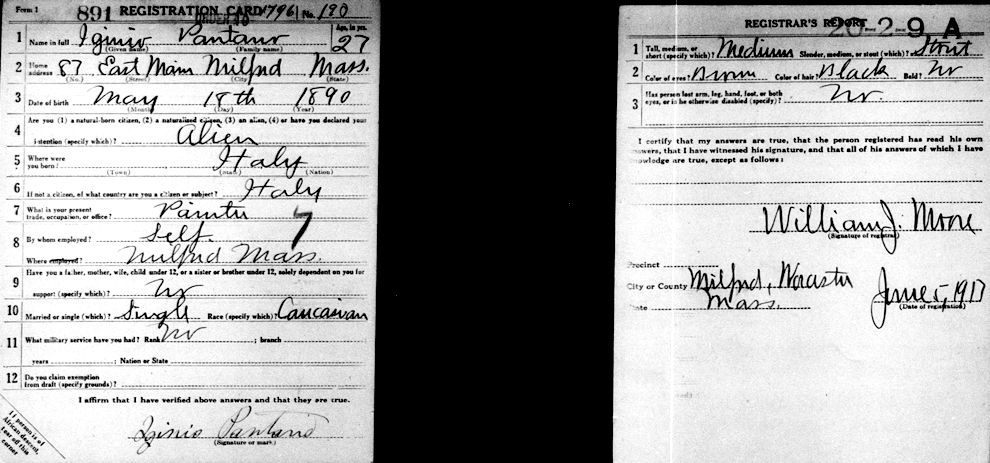 Form 1 891 REGISTRATION CARD 1796 No. 190
Age, in yrs.
1 Name in full Iginio Pantano 27
(Given name) (Family name)
2 Home address 87 East Main Milford Mass.
(No.) (Street) (City) (State)
3 Date of birth May 18th 1890
(Month) (Day) (Year)
Are you (1) a natural-born citizen, (2) a naturalized citizen, (3) an alien, (4) or have you declared your
4 intention (specify which)? Alien
5 Where were you born? Italy
(Town) (State) (Nation)
6 If not a citizen, of what country are you a citizen or subject? Italy
7 What is your present trade, occupation, or office? Painter 7
8 By whom employed? Self.
Where employed? Milford Mass.
Have you a father, mother, wife, child under 12, or a sister or brother under 12, solely dependent on you for
9 support (specify which)? No
10 Married or single (which)? Single Race (specify which)? Caucasian
11 What military service have you had? Rank No ; branch
years ; Nation or State
12 Do you claim exemption from draft (specify grounds)?
I affirm that I have verified above answers and that they are true.
Iginio Pantano
(Signature or mark)
If person is of
African descent,
tear off this
corner
REGISTRAR'S REPORT
20 2 9 A
1 Tall, medium, or short (specify which)? Medium Slender, medium, or stout (which)? Stout
2 Color of eyes? Brown Color of hair? Black Bald? No
3 Has person lost arm, leg, hand, foot, or both eyes, or is he otherwise disabled (specify)? No.
I certify that my answers are true, that the person registered has read his own
answers, that I have witnessed his signature, and that all of his answers of which I have
knowledge are true, except as follows:
William J. Moore
(Signature of registrar)
Precinct
City or County Milford, Worcester
State Mass. June 5, 1917
(Date of registration)